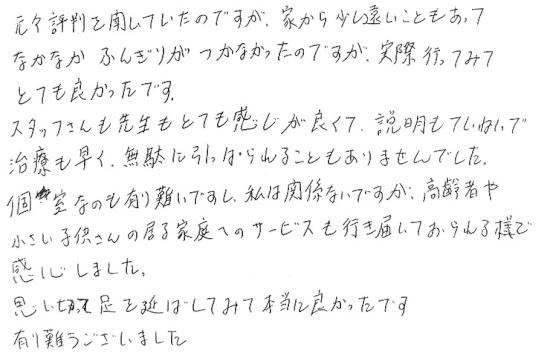 元々評判を聞いていたのですが、家から少し遠いこともあって
なかなか ふんぎりが つかなかったのですが、実際行ってみて
とても良かったです。
スタッフさんも先生もとても感じが良くて、説明もていねいで
治療も早く、無駄に引っぱられることもありませんでした。
個室なのも有り難いですし、私は関係ないですが、高齢者や
小さい子供さんの居る家庭へのサービスも行き届いておられる様で
感心しました。
思い切って足を延ばしてみて本当に良かったです
有り難うございました